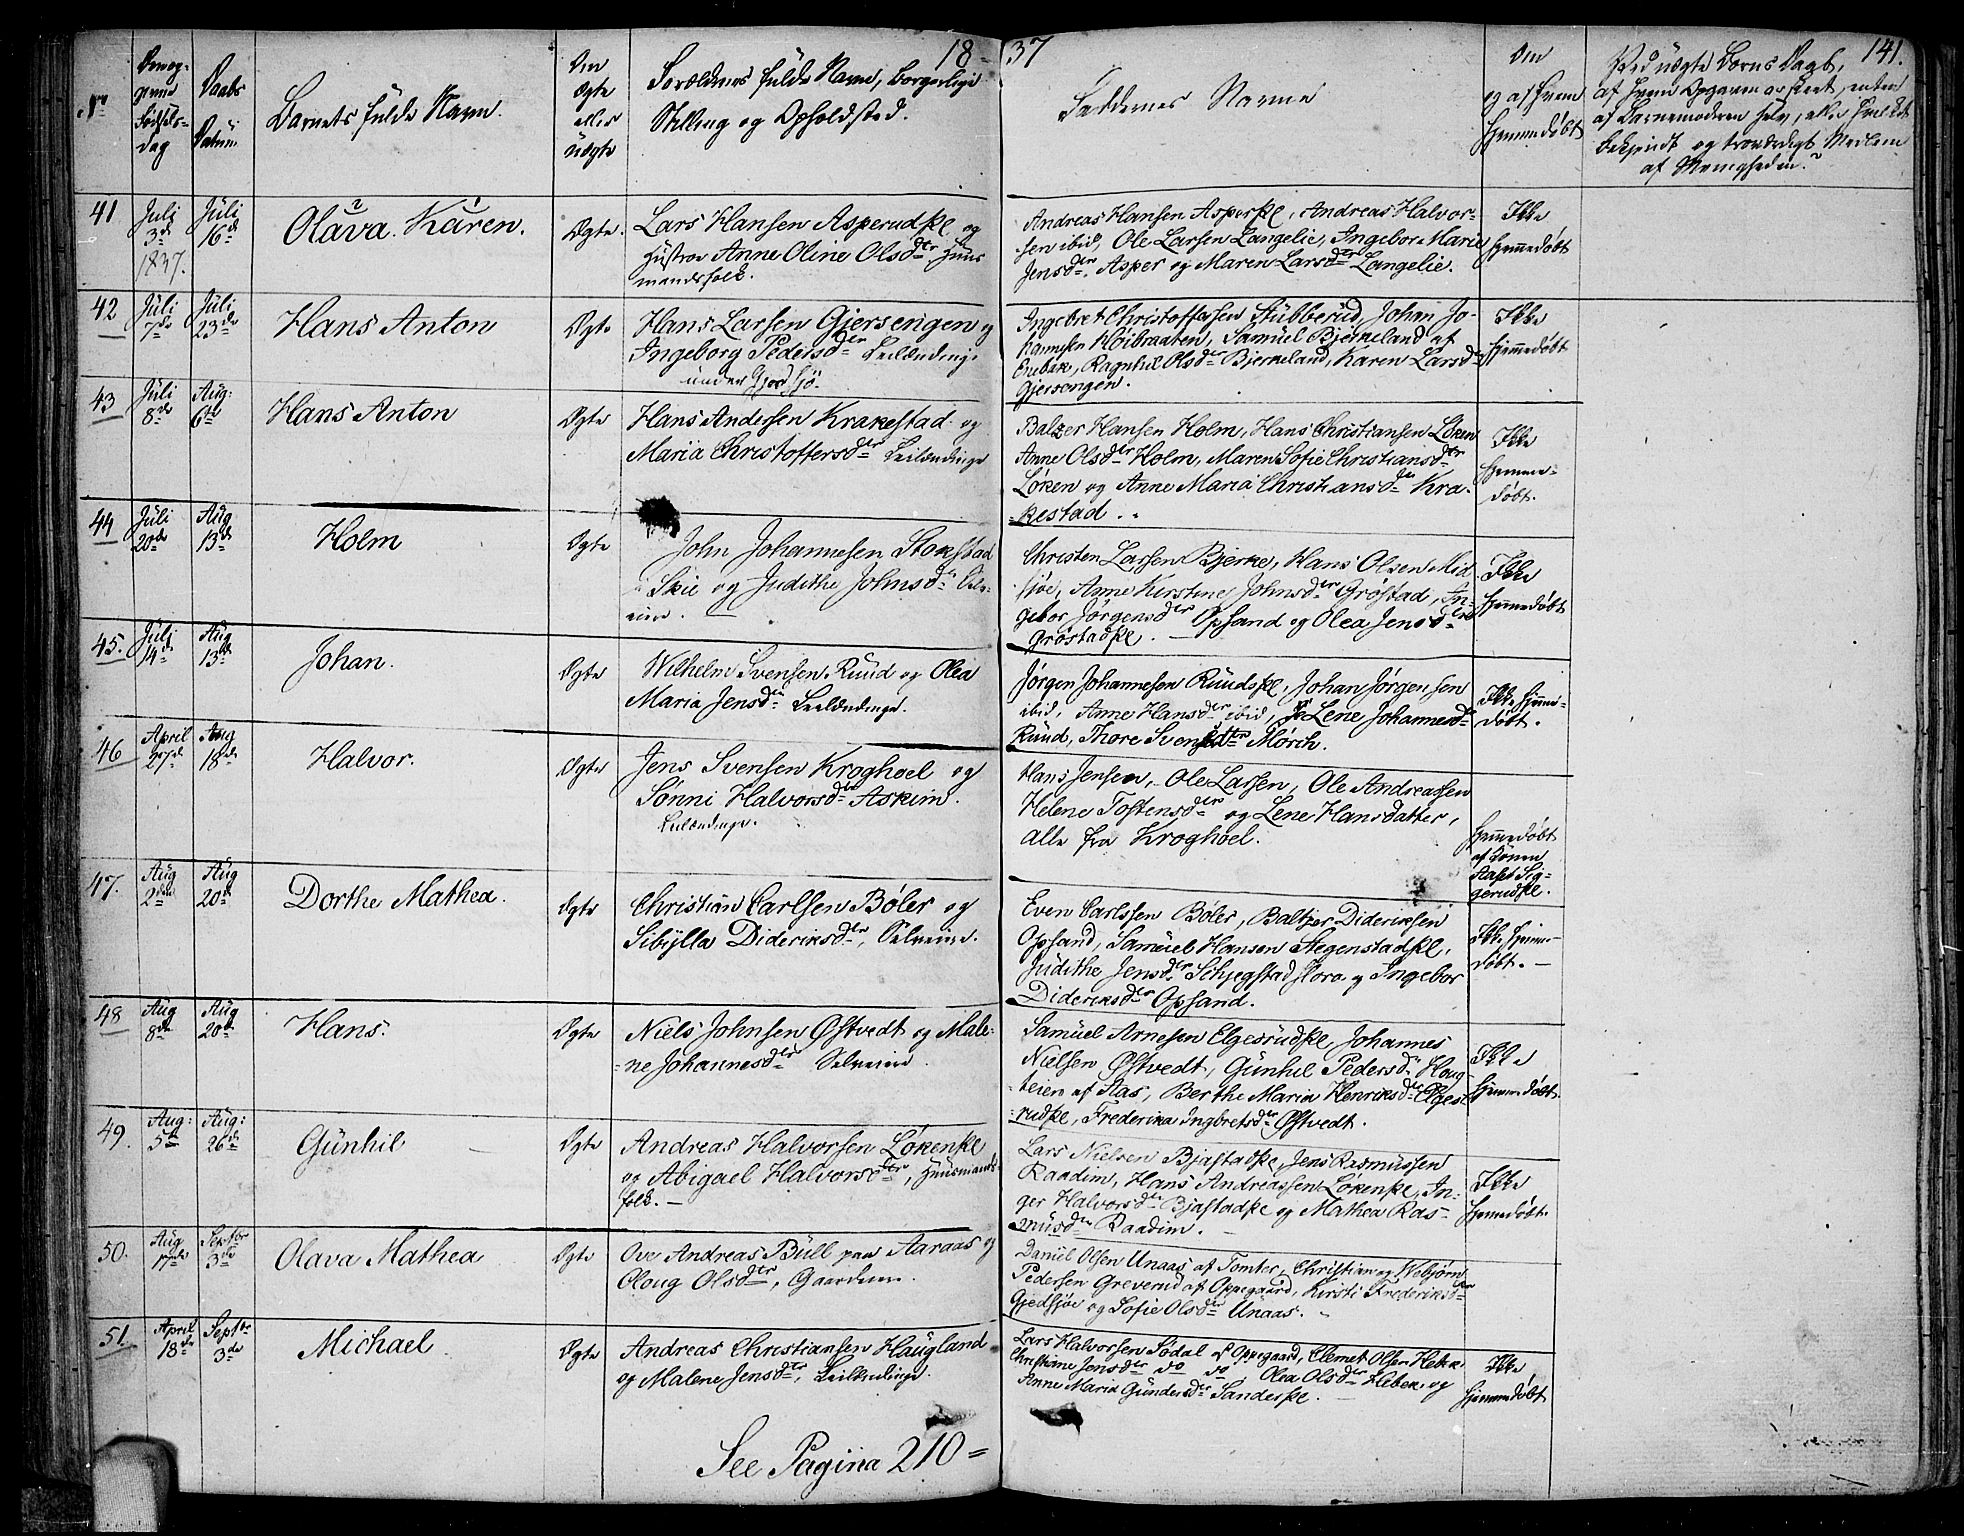 18 37
141.
No
Barnets fulde Navn.
Forældrenes fulde Navne, borgerlige
Stilling og Opholdsted.
Faddernes Navne
Om
og af hvem
hjemmedøbt
Ved uægte Børns Daab,
41
Juli
3de
1837.
Juli
16de
Olava Karen.
Ægte.
Lars Hansen Asperudke og
Hustroe Anne Oline Olsdtr Huus
mandsfolk.
Andreas Hansen Asperke, Andreas Halvor-
sen ibid, Ole Larsen Langelie, Ingebor Marie
Jensdtr Asper og Maren Larsdtr Langelie.
Ikke
hjemmedøbt
42
Juli
7de
Juli
23de
Hans Anton
Ægte
Hans Larsen Gjersengen og
Ingeborg Pedersdtr Leilændinge
under
Ingebret Christoffersen Stubberud, Johan Jo-
hannesen Høibraaten, Samuel Bjerkeland af
Enebak, Ragnhil Olsdtr Bjerkeland, Karen Larsdtr
Gjersengen.
Ikke
hjemmedøbt
43
Juli
8de
Aug:
6te
Hans Anton
Ægte
Hans Andersen Krakestad og
Maria Christoffersdtr Leilændinge
Balzer Hansen Holm, Hans Christiansen Løken
Anne Olsdtr Holm, Maren Sofie Christiansdtr
Løken og Anne Maria Christiansdtr Kra-
kestad.
Ikke
hjemme-
døbt.
44
Juli
20de
Aug
13de
Holm
Ægte
John Johannesen Stokstad
i Skie og Judithe Johnsdtr Selv-
eiere.
Christen Larsen Bjerke, Hans Olsen Mid
sjøe, Anne Kirstine Johnsdtr Grøstad, In-
gebor Jørgensdtr Opsand og Olea Jensdtr
Grøstadke.
Ikke
hjemmedøbt
45.
Juli
14de
Aug
13de
Johan.
Ægte
Wilhelm Svensen Ruud og Olea
Maria Jensdtr Leilændinge.
Jørgen Johannesen Ruudske, Johan Jørgensen
ibid, Anne Hansdtr ibid, Lene Johannesd
Ruud, Thore Svensdtr Mørch.
Ikke hjemme-
døbt.
46
April
27de
Aug
18de
Halvor.
Ægte
Jens Svensen Kroghoel og
Sønni Halvorsdtr Askim.
Leilændinge.
Hans Jensen, Ole Larsen, Ole Andreassen
Helene Tostensdtr og Lene Hansdatter,
alle fra Kroghoel.
hjemmedøbt
af
47.
Aug
2den
Aug
20de
Dorthe Mathea.
Ægte
Christian Carlsen Bøler og
Sibylla Dideriksdtr, Selveiere.
Even Carlssen Bøler, Baltzer Dideriksen
Opsand, Samuel Hansen Stegenstadke,
Judithe Jensdtr Schjegstad flora og Ingebor
Dideriksdtr Opsand.
Ikke hjemme-
døbt. —
48
Aug
8de
Aug
20de
Hans.
Ægte
Niels Johnsen Østvedt og Male-
ne Johannesdtr Selveiere.
Samuel Arnesen Elgesrudke, Johannes
Nielsen Østvedt, Gunhil Pedersdtr Houg
teien af Aas, Berthe Maria Henriksdtr Elges
rudke, Frederika Ingbretsdtr Østvedt.
Ikke
hjemmedøbt.
49.
Aug:
5te
Aug:
26de
Gunhil —
Ægte
Andreas Halvorsen Løkenke
og Abigael Halvorsdtr, Huusmands-
folk. —
Lars Nielsen Bjastadke, Jens Rasmussen
Raadim, Hans Andreassen Løkenke, In-
ger Halvorsdtr Bjastadke og Mathea Ras-
musdtr Raadim. —
Ikke
hjemmedøbt.
50.
Aug
17de
Septbr
3de
Olava Mathea
Ægte
Ove Andreas Bull paa Aaraas og
Oloug Olsdtr, Gaardeiere.
Daniel Olsen Unaas af Tomter, Christian og Webjørn
Pedersen Greverud af Oppegaard, Kirsti Frederiksdtr
Gjedsjøe og Sofie Olsdtr Unaas.
51.
April
18de
Septbr
3de
Michael
Ægte
Andreas Christiansen Haugland
og Malene Jensdtr, Leilændinge.
Lars Halvorsen Sødal af Oppegaard, Clemet Olsen Hebek
Christiane Jensdtr do do Olea Olsdtr Hebek, og
Anne Maria Gundersdtr Sanderke.
Ikke
hjemmedøbt
See Pagina 210 =